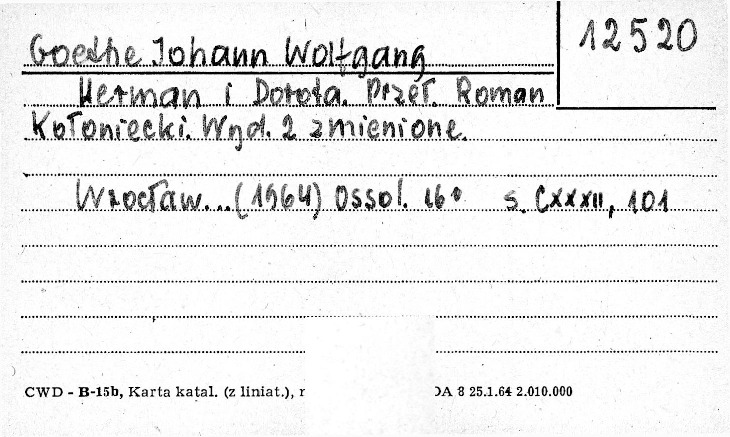 12520
Goethe Johann Wolfgang
Herman i Dorota. Przeł. Roman
Kołoniecki. Wyd. 2 zmienione.
Wrocław...(1964) Ossol. 16° s. CXXXII, 101
CWD - B-15b, Karta katal. (z liniat.), DA 8 25.1.64 2.010.000